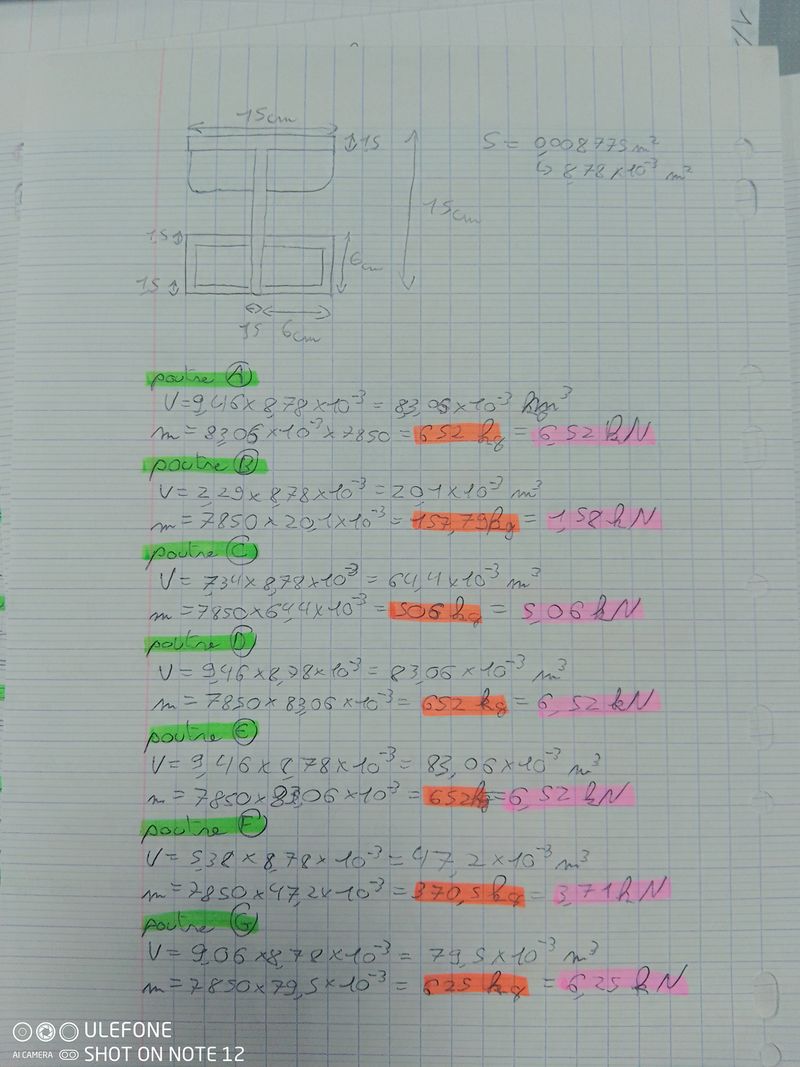 15cm
15
S = 0,008775 m²
↳ 8,78 × 10⁻³ m²
15cm
15
6cm
15
15 6cm
poutre A
V = 9,46 × 8,78 × 10⁻³ = 83,06 × 10⁻³ m³
m = 83,06 × 10⁻³ × 7850 = 652 kg = 6,52 kN
poutre B
V = 2,29 × 8,78 × 10⁻³ = 20,1 × 10⁻³ m³
m = 7850 × 20,1 × 10⁻³ = 157,79 kg = 1,58 kN
poutre C
V = 7,34 × 8,78 × 10⁻³ = 64,4 × 10⁻³ m³
m = 7850 × 64,4 × 10⁻³ = 506 kg = 5,06 kN
poutre D
V = 9,46 × 8,78 × 10⁻³ = 83,06 × 10⁻³ m³
m = 7850 × 83,06 × 10⁻³ = 652 kg = 6,52 kN
poutre E
V = 9,46 × 8,78 × 10⁻³ = 83,06 × 10⁻³ m³
m = 7850 × 83,06 × 10⁻³ = 652 kg = 6,52 kN
poutre F
V = 5,38 × 8,78 × 10⁻³ = 47,2 × 10⁻³ m³
m = 7850 × 47,2 × 10⁻³ = 370,5 kg = 3,71 kN
poutre G
V = 9,06 × 8,78 × 10⁻³ = 79,5 × 10⁻³ m³
m = 7850 × 79,5 × 10⁻³ = 625 kg = 6,25 kN
ULEFONE
AI CAMERA SHOT ON NOTE 12